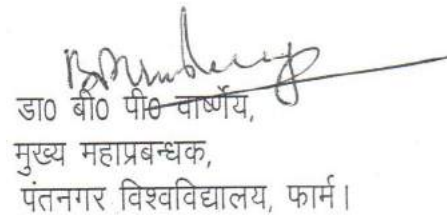 डा0 बी0 पी0 वार्ष्णेय,
मुख्य महाप्रबन्धक,
पंतनगर विश्वविद्यालय, फार्म।